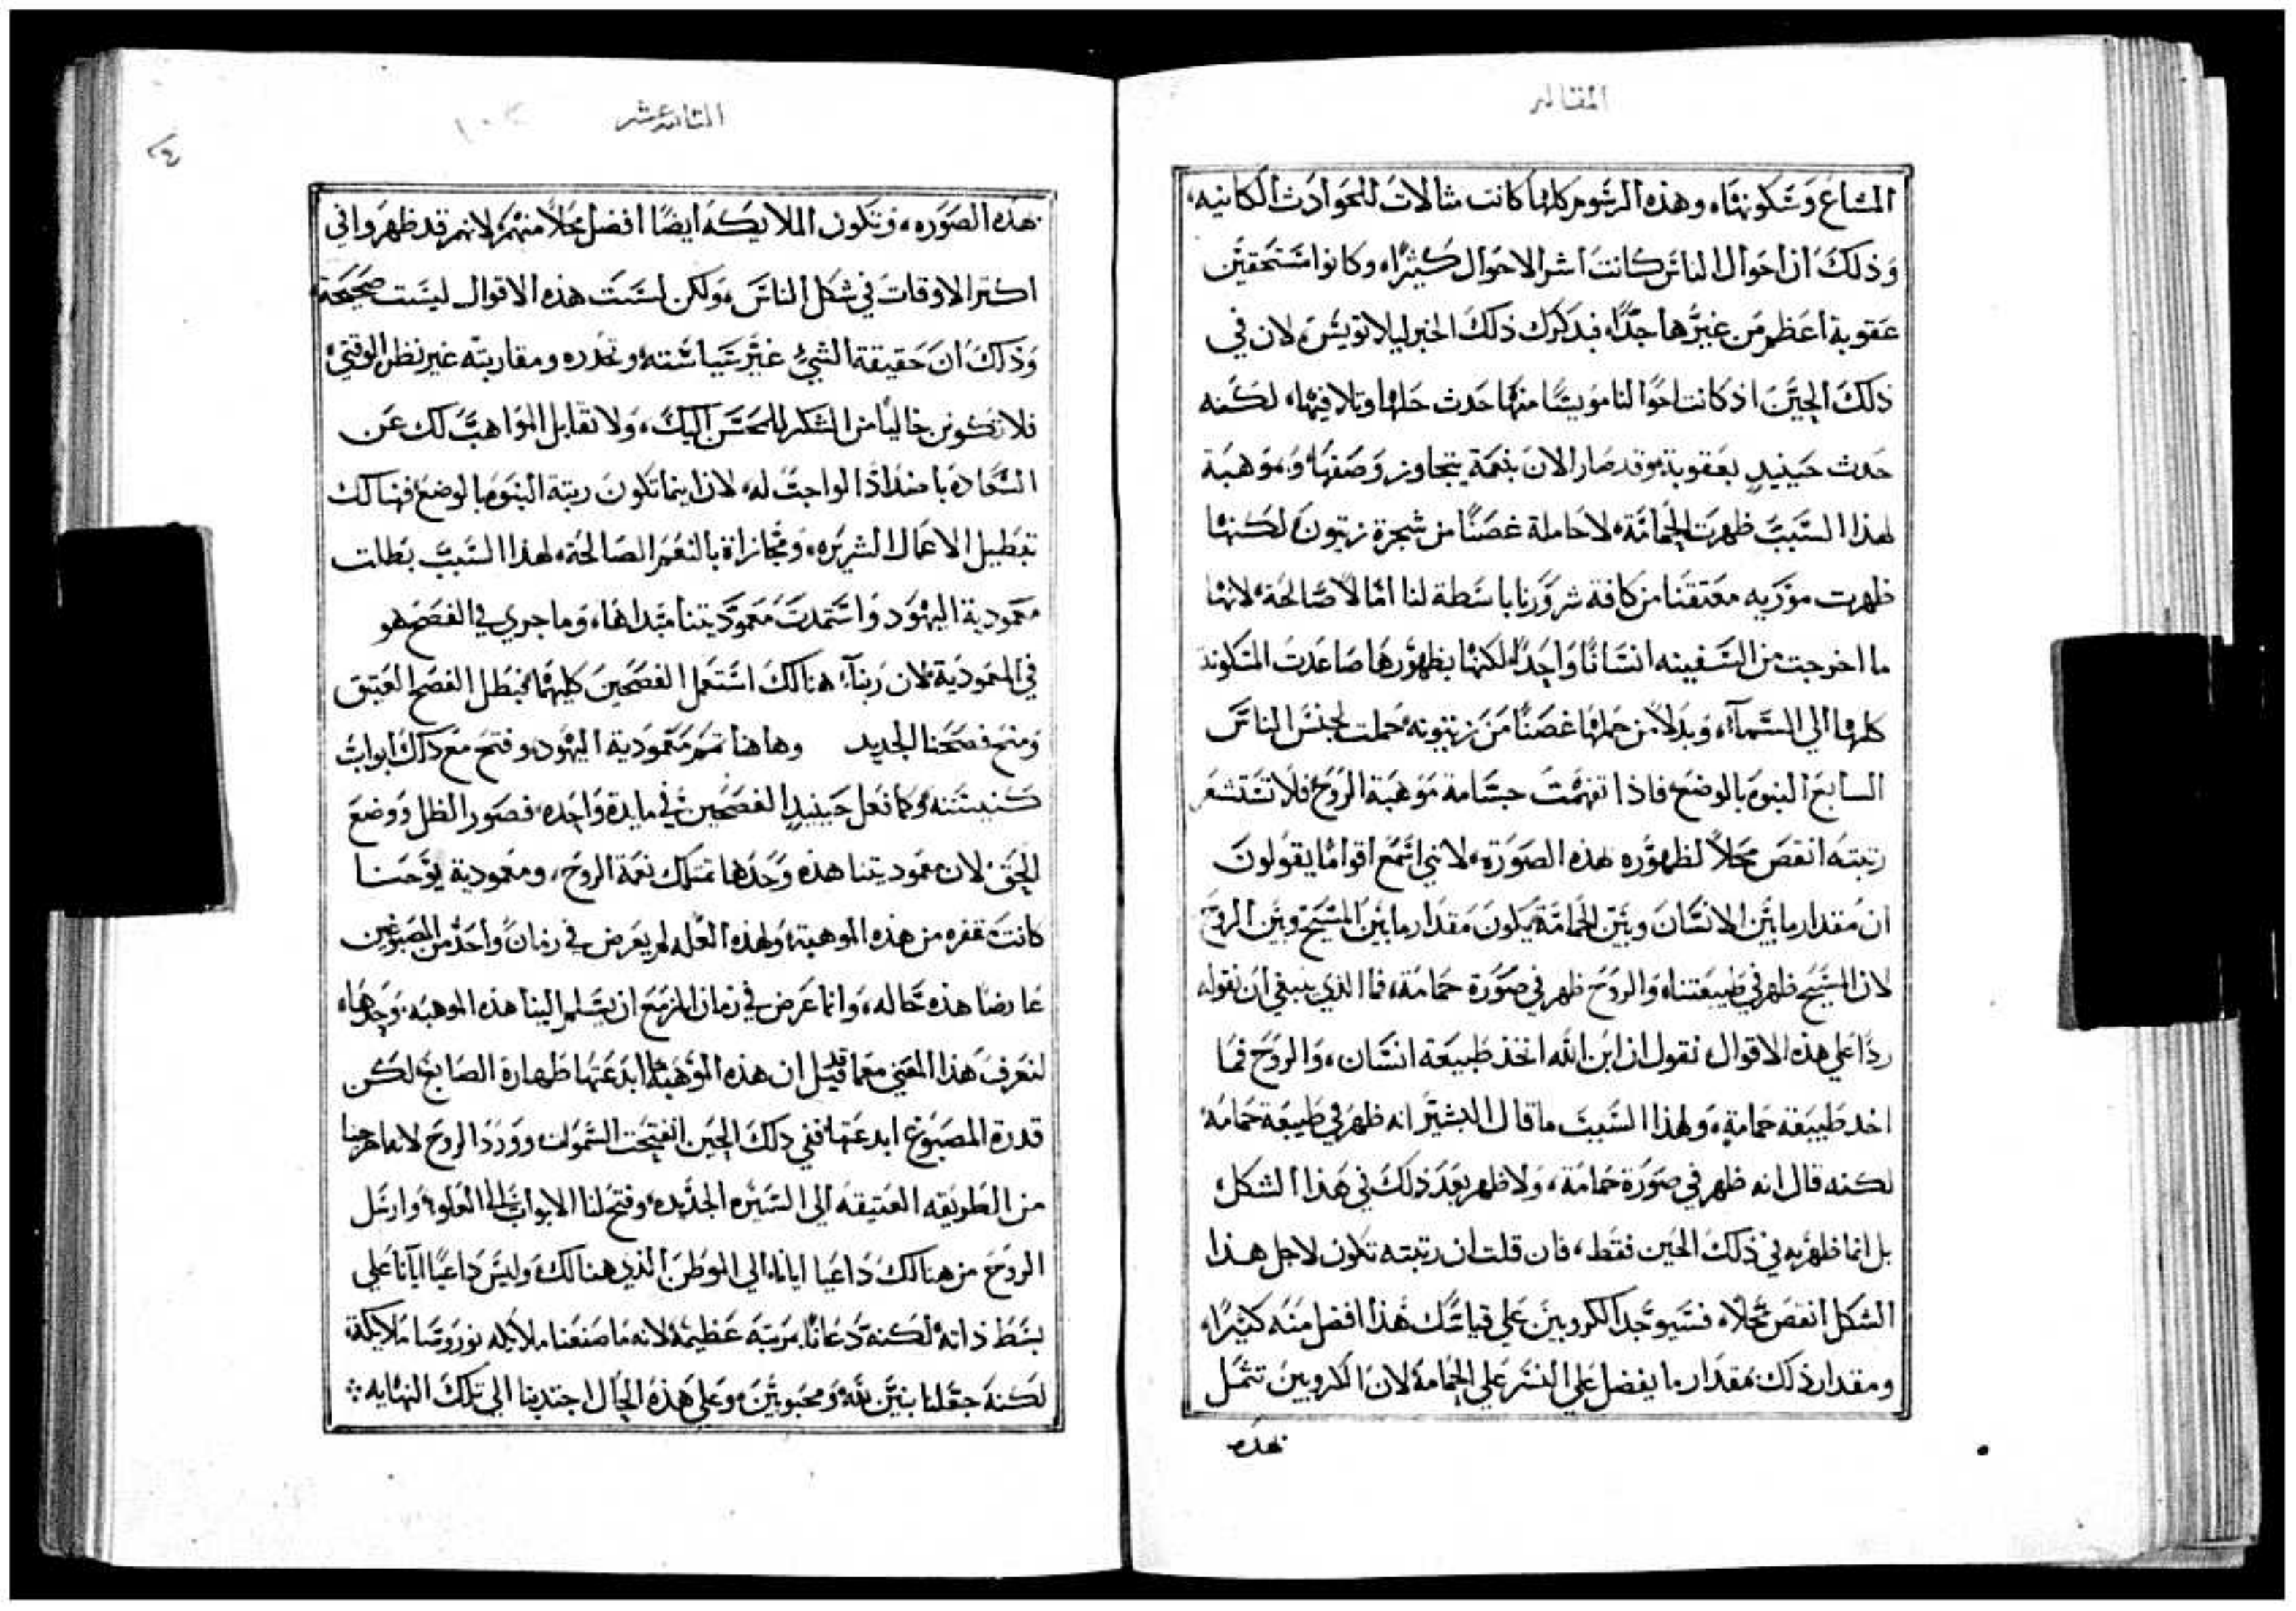 المقاله
المشاع وسكونها، وهذه الرسوم كلها كانت مثالات للحوادث الكاينه،
وذلك ان احوال الناس كانت اشر الاحوال كثيرًا، وكانوا مستحقين
عقوبة اعظم من غيرها جدًا، فيذكرك ذلك الخبر ليلا تويس، لان في
ذلك الحين اذ كانت احوالنا مويسًا منها حدث حلها وتلافيها، لكنه
حدث حينيدٍ بعقوبة، وقد صار الان بنعمة يتجاوز وصفها، وبموهبة
لهذا السبب ظهرت الحمامة، لا حاملة غصنًا من شجرة زيتون، لكنها
ظهرت موريه معتقنا من كافة شرورنا باسطة لنا امالاً صالحة، لانها
ما اخرجت من السفينه انسانًا واحدًا، لكنها بظهورها صاعدت المسكونة
كلها الي السمآء، وبدلاً من حملها غصنًا من زيتونه، حملت لجنس الناس
السابع البنوه بالوضع، فاذا تفهمت جسامة موهبة الروح، فلا تستشعر
رتبته انقص محلاً لظهوره بهذه الصورة، لانني اسمع اقوامًا يقولون
ان مقدار ما بين الانسان وبين الحمامة يكون مقدار ما بين المسيح وبين الروح
لان المسيح ظهر في طبيعتنا، والروح ظهر في صورة حمامة، فما الذي ينبغي ان نقوله
ردًا علي هذه الاقوال، نقول ان ابن الله اتخذ طبيعة انسان، والروح فما
اخد طبيعة حمامةٍ، ولهذا السبب ما قال البشير انه ظهر في طبيعة حمامه
لكنه قال انه ظهر في صورة حمامة، ولا ظهر بعد ذلك في هذا الشكل
بل انما ظهر به في ذلك الحين فقط، فان قلت ان رتبته تكون لاجل هذا
الشكل انقص محلاً، فسيوجد الكروبين علي قياسك هذا افضل منه كثيرًا،
ومقدار ذلك بمقدار ما يفضل علي النسر علي الحمامة لان الكاروبين تتمثل
بهذه
الثانيه عشر
بهذه الصوره، وتكون الملايكه ايضًا افضل محلاً منهم، لانهم قد ظهروا في
اكتر الاوقات في شكل الناس، ولكن ليست هذه الاقوال ليست صحيحة
وذلك ان حقيقة الشيء غير سياسته، وتحدره ومقاربته غير نظر الوقتي،
فلا تكونن خاليًا من الشكر للمحسن اليك، ولا تقابل المواهب لك عن
السعاده باضداد الواجب له، لان اينما تكون رتبة البنوه بالوضع، فهنالك
تعطيل الاعمال الشريره، ومجازاة بالنعم الصالحة، لهذا السبب بطلت
معمودية اليهود واستمدت معموديتنا مبداها، وما جري في الفصح هو
في المعمودية، لان ربنآ، هنالك استعمل الفصحين كليهما، فبطل الفصح العتيق
ومنح فصحنا الجديد وها هنا تمم معمودية اليهود، وفتح مع ذلك ابواب
كنيسته، وكما فعل حينيدٍ الفصحين في مايدة واحده، فصور الظل ووضع
الحق، لان معموديتنا هذه وحدها تمتلك نعمة الروح، ومعمودية يوحنا
كانت مقفره من هذه الموهبة، ولهذه العله لم يعرض في زمان واحد من المصبوغين
عارضًا هذه حاله، وانما عرض في زمان المزمع ان يسلم الينا هذه الموهبه وحدها،
لنعرف هذا المعني مع ما قد قيل ان هذه الموهبة ما ابدعتها طهارة الصابغ، لكن
قدرة المصبوغ ابدعتها، ففي ذلك الحين انفتحت السموات وورد الروح
من الطريقه العتيقه الي السيره الجديده، وفتح لنا الابواب الي العلو، وارسل
الروح من هنالك داعيا ايانا الي الوطن الذي هنالك، وليس داعيًا ايانا علي
بسط ذاته لكنه دعانا بمرتبة عظيمة لانه ما صنعنا ملايكه وروسا ملايكة
لكنه جعلنا بنين لله ومحبوبين، وعلي هذه الحال اجتدبنا الي تلك النهايه